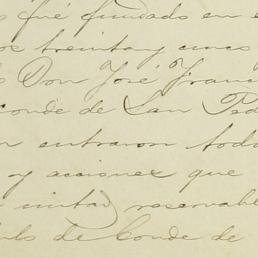 fué fundado en e
treinta y cinco
Don José Franc
Conde de San Ped
n entraron todo
y acciones que
mitad reservable
tulo de Conde de